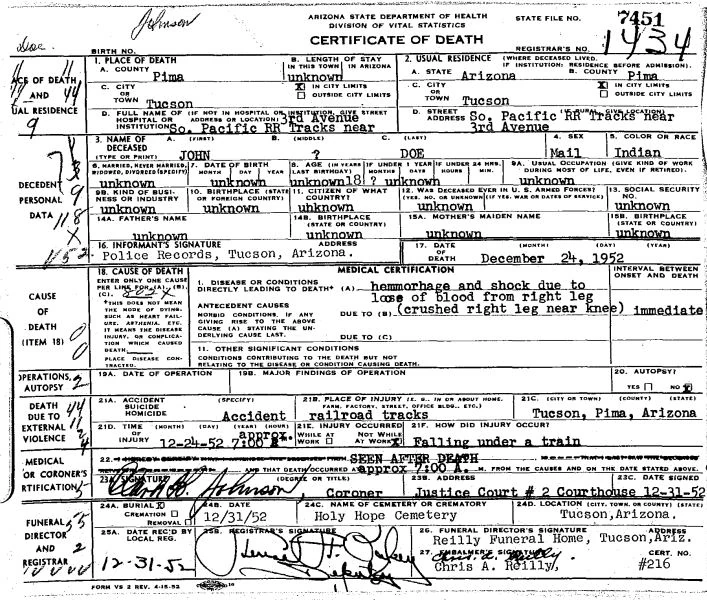 Johnson
ARIZONA STATE DEPARTMENT OF HEALTH
DIVISION OF VITAL STATISTICS
CERTIFICATE OF DEATH
STATE FILE NO. 7451
REGISTRAR'S NO. 1434
Doe
BIRTH NO.
PLACE OF DEATH AND USUAL RESIDENCE
1. PLACE OF DEATH
A. COUNTY Pima
B. LENGTH OF STAY IN THIS TOWN IN ARIZONA
unknown
2. USUAL RESIDENCE (WHERE DECEASED LIVED. IF INSTITUTION: RESIDENCE BEFORE ADMISSION).
A. STATE Arizona B. COUNTY Pima
C. CITY OR TOWN Tucson
X IN CITY LIMITS
OUTSIDE CITY LIMITS
C. CITY OR TOWN Tucson
X IN CITY LIMITS
OUTSIDE CITY LIMITS
D. FULL NAME OF (IF NOT IN HOSPITAL OR INSTITUTION, GIVE STREET ADDRESS OR LOCATION) HOSPITAL OR INSTITUTION
3rd Avenue
So. Pacific RR Tracks near
D. STREET ADDRESS (IF RURAL, GIVE LOCATION)
So. Pacific RR Tracks near
3rd Avenue
DECEDENT PERSONAL DATA
3. NAME OF DECEASED (TYPE OR PRINT)
A. (FIRST) B. (MIDDLE) C. (LAST)
JOHN ? DOE
4. SEX
Mail
5. COLOR OR RACE
Indian
6. MARRIED, NEVER MARRIED, WIDOWED, DIVORCED (SPECIFY)
unknown
7. DATE OF BIRTH
MONTH DAY YEAR
unknown
8. AGE (IN YEARS LAST BIRTHDAY) IF UNDER 1 YEAR MONTHS DAYS IF UNDER 24 HRS. HOURS MIN.
unknown18! ? unknown
9A. USUAL OCCUPATION (GIVE KIND OF WORK DURING MOST OF LIFE, EVEN IF RETIRED).
unknown
9B. KIND OF BUSINESS OR INDUSTRY
unknown
10. BIRTHPLACE (STATE OR FOREIGN COUNTRY)
unknown
11. CITIZEN OF WHAT COUNTRY?
unknown
12. WAS DECEASED EVER IN U. S. ARMED FORCES?
(YES, NO, OR UNKNOWN) (IF YES, WAR OR DATES OF SERVICE)
unknown
13. SOCIAL SECURITY NO.
unknown
14A. FATHER'S NAME
unknown
14B. BIRTHPLACE (STATE OR COUNTRY)
unknown
15A. MOTHER'S MAIDEN NAME
unknown
15B. BIRTHPLACE (STATE OR COUNTRY)
unknown
16. INFORMANT'S SIGNATURE ADDRESS
Police Records, Tucson, Arizona.
17. DATE OF DEATH (MONTH) (DAY) (YEAR)
December 24, 1952
CAUSE OF DEATH (ITEM 18)
18. CAUSE OF DEATH
ENTER ONLY ONE CAUSE PER LINE FOR (A), (B), (C).
*THIS DOES NOT MEAN THE MODE OF DYING, SUCH AS HEART FAILURE, ASTHENIA, ETC. IT MEANS THE DISEASE, INJURY, OR COMPLICATION WHICH CAUSED DEATH.
PLACE DISEASE CONTRACTED.
MEDICAL CERTIFICATION
INTERVAL BETWEEN ONSET AND DEATH
I. DISEASE OR CONDITIONS DIRECTLY LEADING TO DEATH* (A)
hemmorhage and shock due to
loss of blood from right leg
ANTECEDENT CAUSES
MORBID CONDITIONS, IF ANY GIVING RISE TO THE ABOVE CAUSE (A) STATING THE UNDERLYING CAUSE LAST.
DUE TO (B) (crushed right leg near knee) immediate
DUE TO (C)
11. OTHER SIGNIFICANT CONDITIONS
CONDITIONS CONTRIBUTING TO THE DEATH BUT NOT RELATING TO THE DISEASE OR CONDITION CAUSING DEATH.
OPERATIONS, AUTOPSY
19A. DATE OF OPERATION
19B. MAJOR FINDINGS OF OPERATION
20. AUTOPSY
YES NO X
DEATH DUE TO EXTERNAL VIOLENCE
21A. ACCIDENT SUICIDE HOMICIDE (SPECIFY)
Accident
21B. PLACE OF INJURY (E. G., IN OR ABOUT HOME, FARM, FACTORY, STREET, OFFICE BLDG., ETC.)
railroad tracks
21C. (CITY OR TOWN) (COUNTY) (STATE)
Tucson, Pima, Arizona
21D. TIME OF INJURY (MONTH) (DAY) (YEAR) (HOUR)
approx.
12-24-52 7:00 A.
21E. INJURY OCCURRED
WHILE AT WORK NOT WHILE AT WORK X
21F. HOW DID INJURY OCCUR?
Falling under a train
MEDICAL OR CORONER'S CERTIFICATION
22.
SEEN AFTER DEATH
AND THAT DEATH OCCURRED AT approx 7:00 A. M. FROM THE CAUSES AND ON THE DATE STATED ABOVE.
23A. SIGNATURE (DEGREE OR TITLE)
Johnson, Coroner
23B. ADDRESS
Justice Court # 2 Courthouse
23C. DATE SIGNED
12-31-52
FUNERAL DIRECTOR AND REGISTRAR
24A. BURIAL X
CREMATION
REMOVAL
24B. DATE
12/31/52
24C. NAME OF CEMETERY OR CREMATORY
Holy Hope Cemetery
24D. LOCATION (CITY, TOWN, OR COUNTY) (STATE)
Tucson,Arizona.
25A. DATE REC'D BY LOCAL REG.
12-31-52
25B. REGISTRAR'S SIGNATURE
26. FUNERAL DIRECTOR'S SIGNATURE ADDRESS
Reilly Funeral Home, Tucson, Ariz.
27. EMBALMER'S SIGNATURE CERT. NO.
Chris A. Reilly
Chris A. Reilly, #216
FORM VS 2 REV. 4-15-52